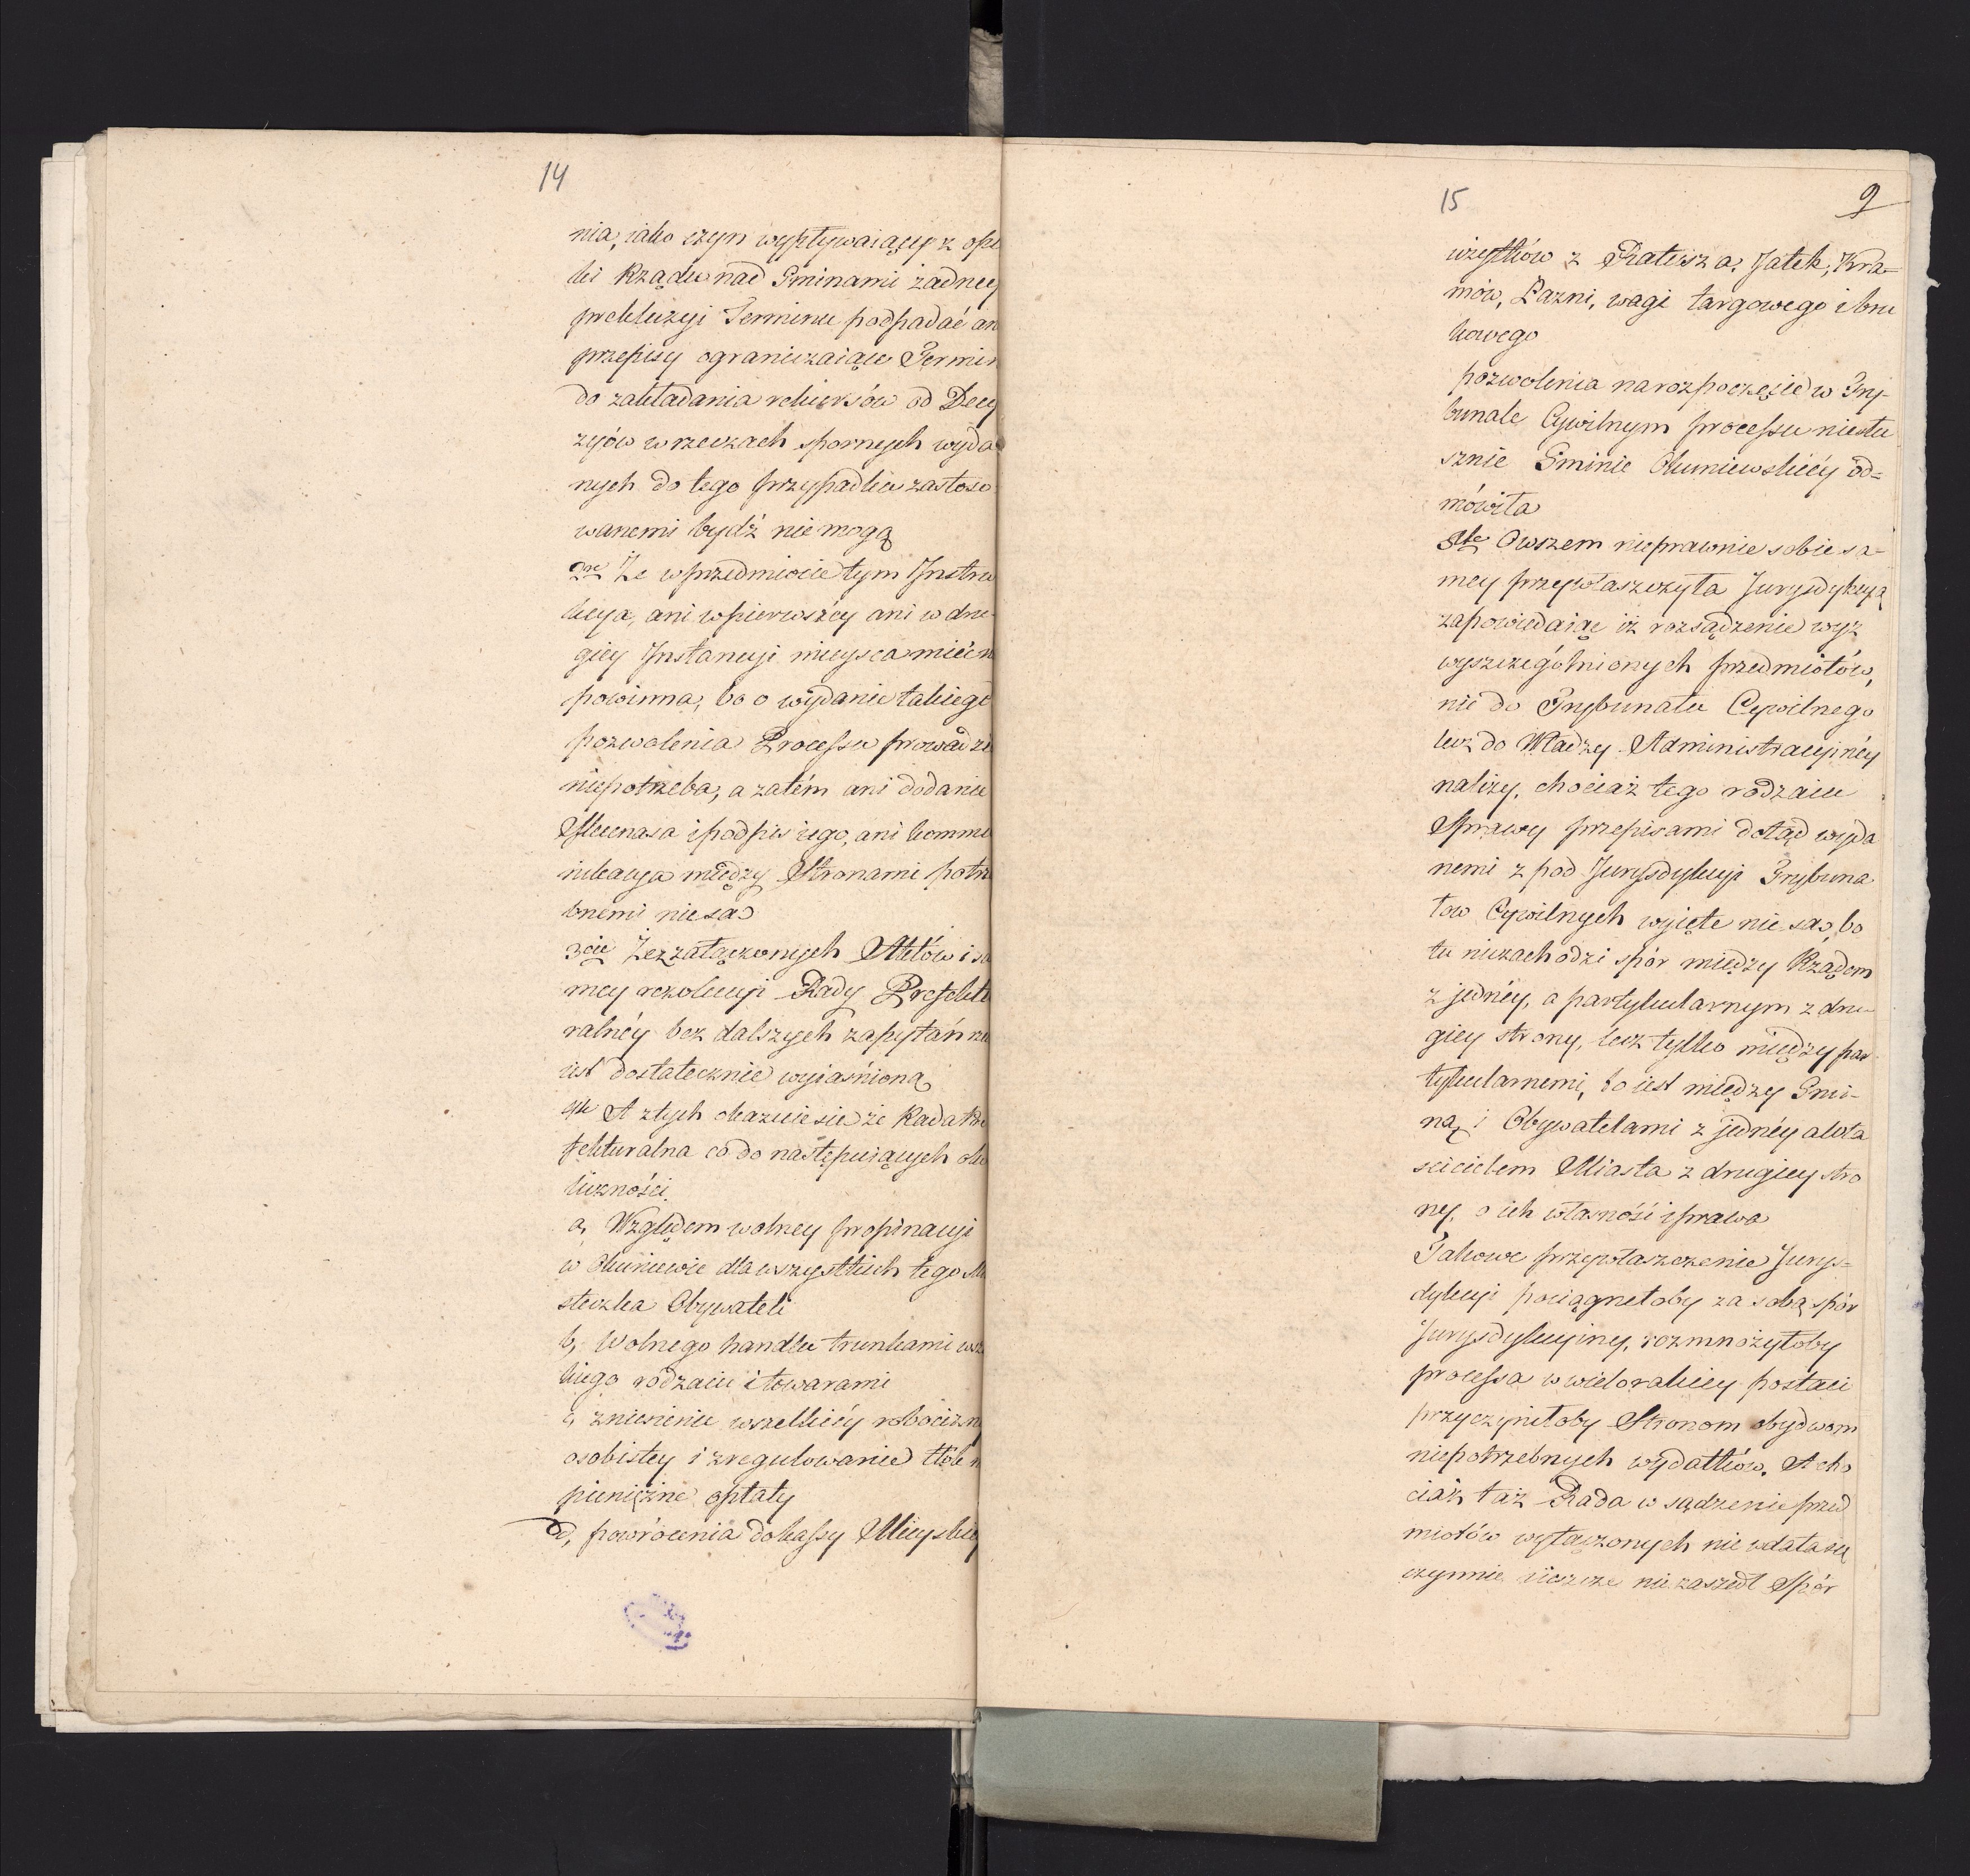 14
nia, iako czyn wypływaiący z opie
ki Rządu nad Gminami żadney
prekluzyi Terminu podpadać an
przepisy ograniczaiące Termin
do zakładania rekursów od Decy
zyów w rzeczach spornych wyda
nych do tego przypadku zastoso
wanemi bydź nie mogą
2re Że w przedmiocie tym Instru
kcya, ani w pierwszéy ani w dru
giey Instancyi mieysca mieć n
powinna, bo o wydanie takiego
pozwolenia Processu prowadzi
niepotrzeba, a zatém ani dodanie
Mecenasa i podpis iego, ani kommu
nikacya między Stronami potrze
bnemi nie są
3cie Że z załączonych Aktów i sa
mey rezolucyi Rady Prefektu
ralnéy bez dalszych zapytań rze
iest dostatecznie wyiaśnioną
4te A z tych okazuie sie że Rada Pre
fekturalna co do następuiących oko
liczności
a, Względem wolney propinacyi
w Okuniewie dla wszystkich tego Mia
steczka Obywateli
b, Wolnego handlu trunkami wsze
kiego rodzaiu i towarami
c, zniesienie wszelkiéy robocizny
osobistey i zregulowanie tłók n
pieniężne opłaty
d, powrócenia do kassy Mieyskiey
15
9
użytków z Ratusza, Jatek, Kra=
mów, Łazni, wagi targowego i bru
kowego
pozwolenia na rozpoczęcie w Try-
bunale Cywilnym processu niesłu
sznie Gminie Okuniewskiéy od=
mówiła
5te Owszem nieprawnie sobie sa=
mey przywłaszczyła Jurysdykcyą
zapowiedaiąc iż rozsądzenie wyz
wyszczególnionych przedmiotów,
nie do Trybunału Cywilnego
lecz do Władzy Administracyinéy
należy, chociaż tego rodzaiu
Sprawy przepisami dotąd wyda
nemi z pod Jurysdykcyi Trybuna
łow Cywilnych wyięte nie są, bo
tu niezachodzi spór między Rządem
z jednéy, a partykularnym z dru
giey strony, lecz tylko między par
tykularnemi, to iest między Gmi-
ną i Obywatelami z jednéy a wła
scicielem Miasta z drugiey stro
ny, o ich własność i prawa
Takowe przywłaszczenie Jurys=
dykcyi pociągnełoby za sobą spór
Jurysdykcyiny, rozmnożyłoby
processa w wielorakiey postaci
przyczyniłoby Stronom obydwom
niepotrzebnych wydatków. A cho
ciaż taż Rada w sądzenie przed
miotów wyłączonych nie wdała się
czynnie iieszcze nie zaszedł Spór